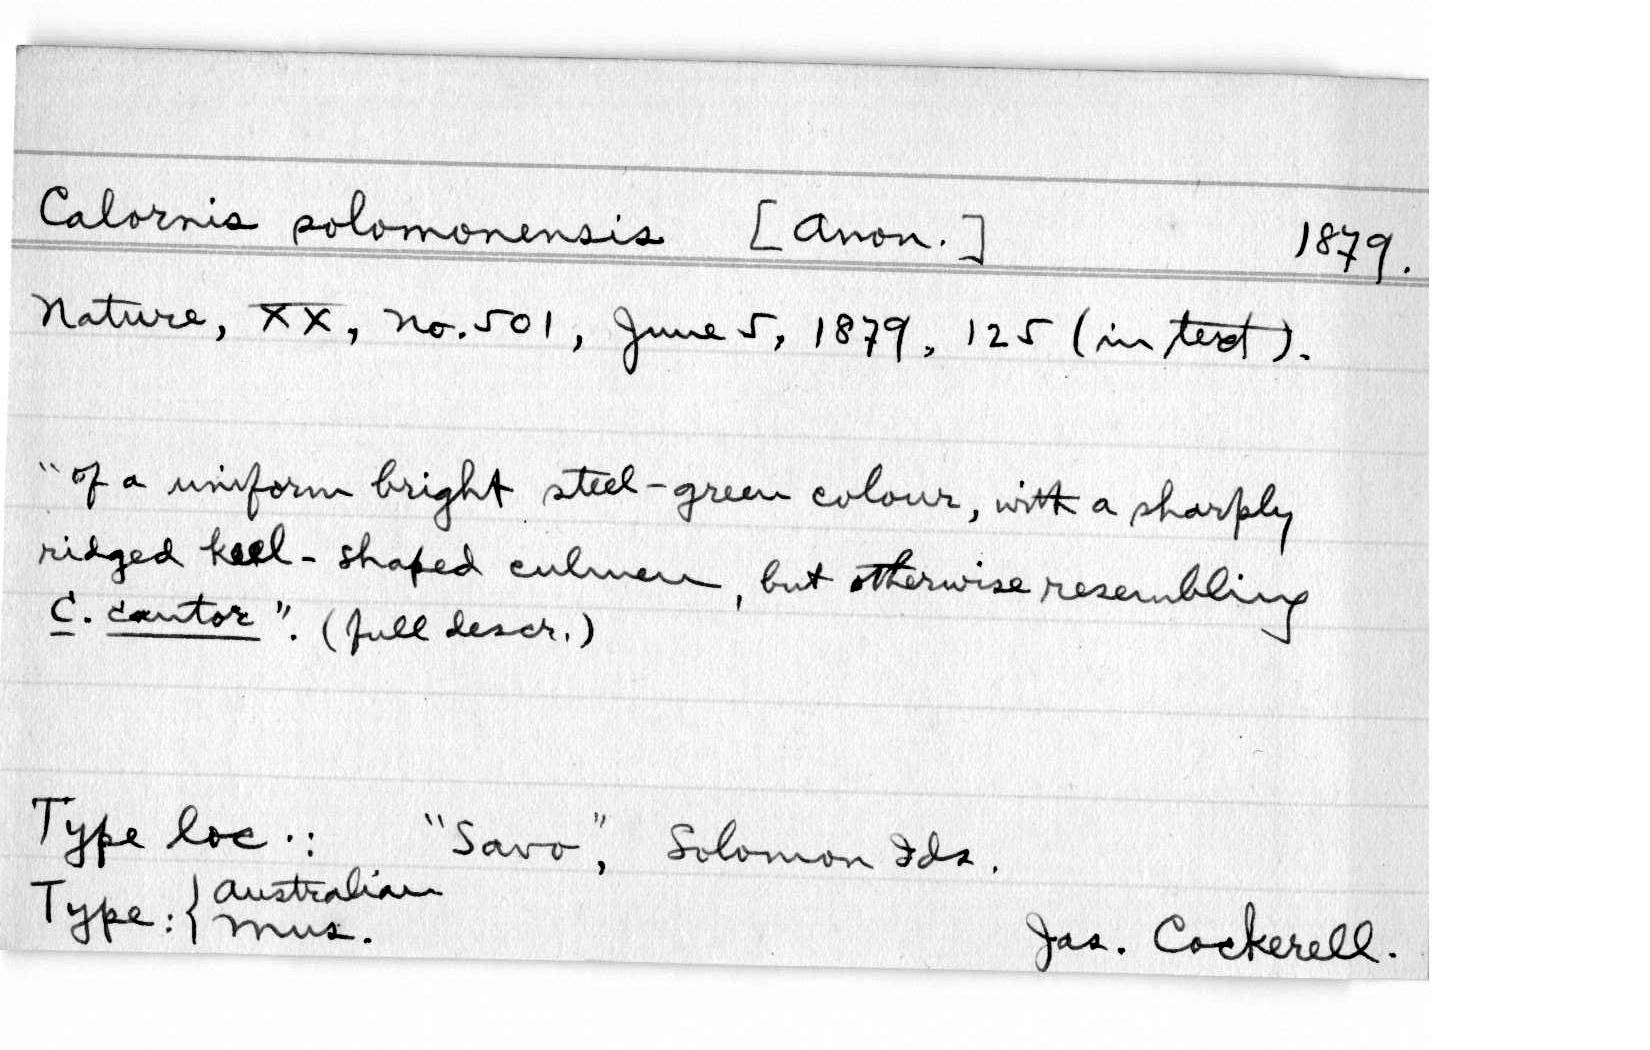 Calornis solomonensis [Anon.] 1879.
Nature, XX, no. 501, June 5, 1879, 125 (in text).
"of a uniform bright steel-green colour, with a sharply
ridged keel-shaped culmen, but otherwise resembling
C. cantor". (full descr.)
Type loc.: "Savo", Solomon Ids.
Type: { Australian
Mus.
Jas. Cockerell.